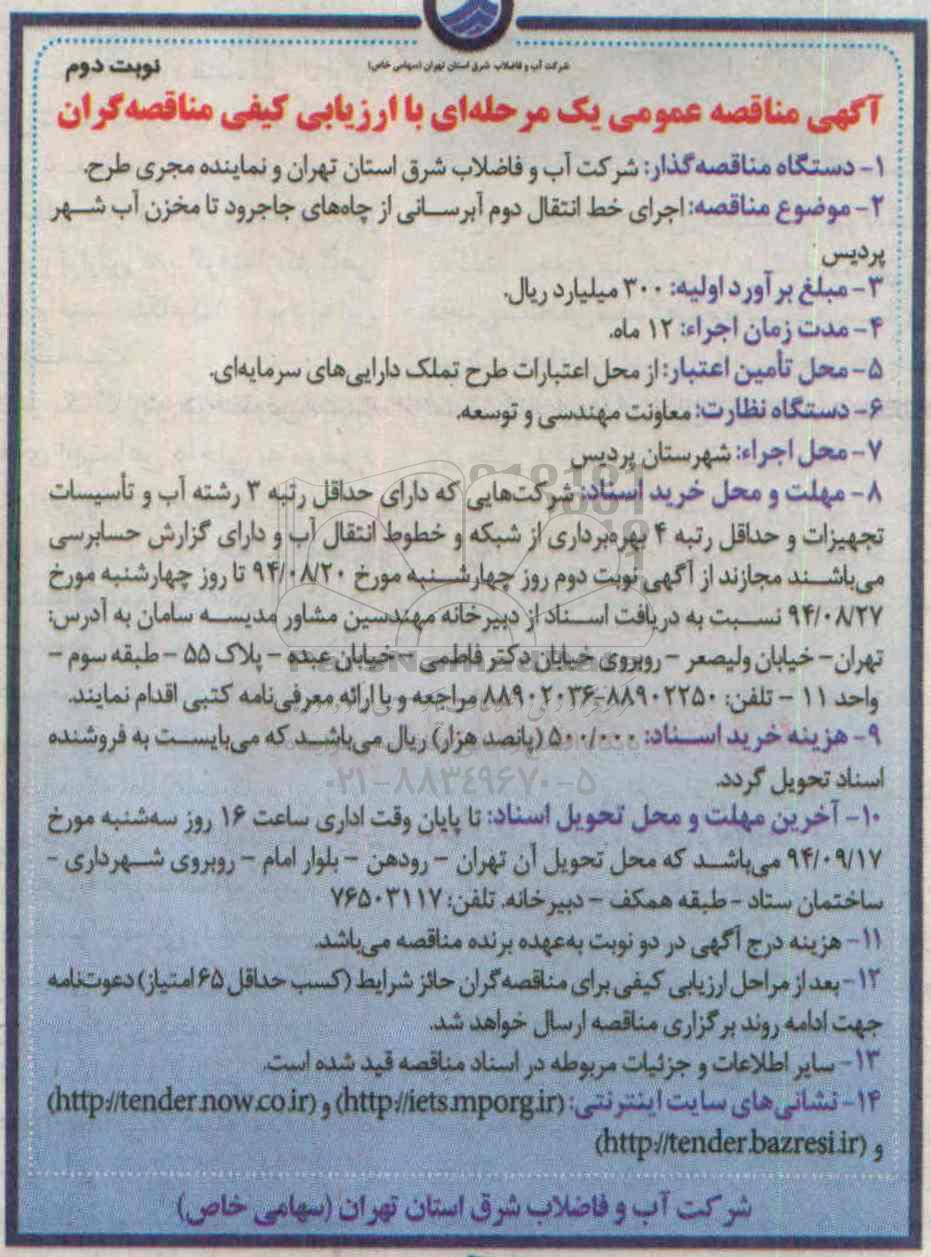 شرکت آب و فاضلاب شرق استان تهران (سهامی خاص)
نوبت دوم
آگهی مناقصه عمومی یک مرحله‌ای با ارزیابی کیفی مناقصه‌گران
۱- دستگاه مناقصه‌گذار: شرکت آب و فاضلاب شرق استان تهران و نماینده مجری طرح.
۲- موضوع مناقصه: اجرای خط انتقال دوم آبرسانی از چاه‌های جاجرود تا مخزن آب شهر
پردیس
۳- مبلغ برآورد اولیه: ۳۰۰ میلیارد ریال.
۴- مدت زمان اجراء: ۱۲ ماه.
۵- محل تأمین اعتبار: از محل اعتبارات طرح تملک دارایی‌های سرمایه‌ای.
۶- دستگاه نظارت: معاونت مهندسی و توسعه.
۷- محل اجراء: شهرستان پردیس
۸- مهلت و محل خرید اسناد: شرکت‌هایی که دارای حداقل رتبه ۳ رشته آب و تأسیسات
تجهیزات و حداقل رتبه ۴ بهره‌برداری از شبکه و خطوط انتقال آب و دارای گزارش حسابرسی
می‌باشند مجازند از آگهی نوبت دوم روز چهارشنبه مورخ ۹۴/۰۸/۲۰ تا روز چهارشنبه مورخ
۹۴/۰۸/۲۷ نسبت به دریافت اسناد از دبیرخانه مهندسین مشاور مدیسه سامان به آدرس:
تهران- خیابان ولیصعر - روبروی خیابان دکتر فاطمی - خیابان عبده - پلاک ۵۵ - طبقه سوم -
واحد ۱۱ - تلفن: ۸۸۹۰۲۲۵۰-۸۸۹۰۲۰۳۶ مراجعه و با ارائه معرفی‌نامه کتبی اقدام نمایند.
۹- هزینه خرید اسناد: ۵۰۰/۰۰۰ (پانصد هزار) ریال می‌باشد که می‌بایست به فروشنده
اسناد تحویل گردد.
۰۲۱-۸۸۳۴۹۶۷۰-۵
۱۰- آخرین مهلت و محل تحویل اسناد: تا پایان وقت اداری ساعت ۱۶ روز سه‌شنبه مورخ
۹۴/۰۹/۱۷ می‌باشد که محل تحویل آن تهران - رودهن - بلوار امام - روبروی شهرداری -
ساختمان ستاد - طبقه همکف - دبیرخانه. تلفن: ۷۶۵۰۳۱۱۷
۱۱- هزینه درج آگهی در دو نوبت به‌عهده برنده مناقصه می‌باشد.
۱۲- بعد از مراحل ارزیابی کیفی برای مناقصه‌گران حائز شرایط (کسب حداقل ۶۵ امتیاز) دعوتنامه
جهت ادامه روند برگزاری مناقصه ارسال خواهد شد.
۱۳- سایر اطلاعات و جزئیات مربوطه در اسناد مناقصه قید شده است.
۱۴- نشانی‌های سایت اینترنتی: (http://iets.mporg.ir) و (http://tender.now.co.ir)
و (http://tender.bazresi.ir)
شرکت آب و فاضلاب شرق استان تهران (سهامی خاص)